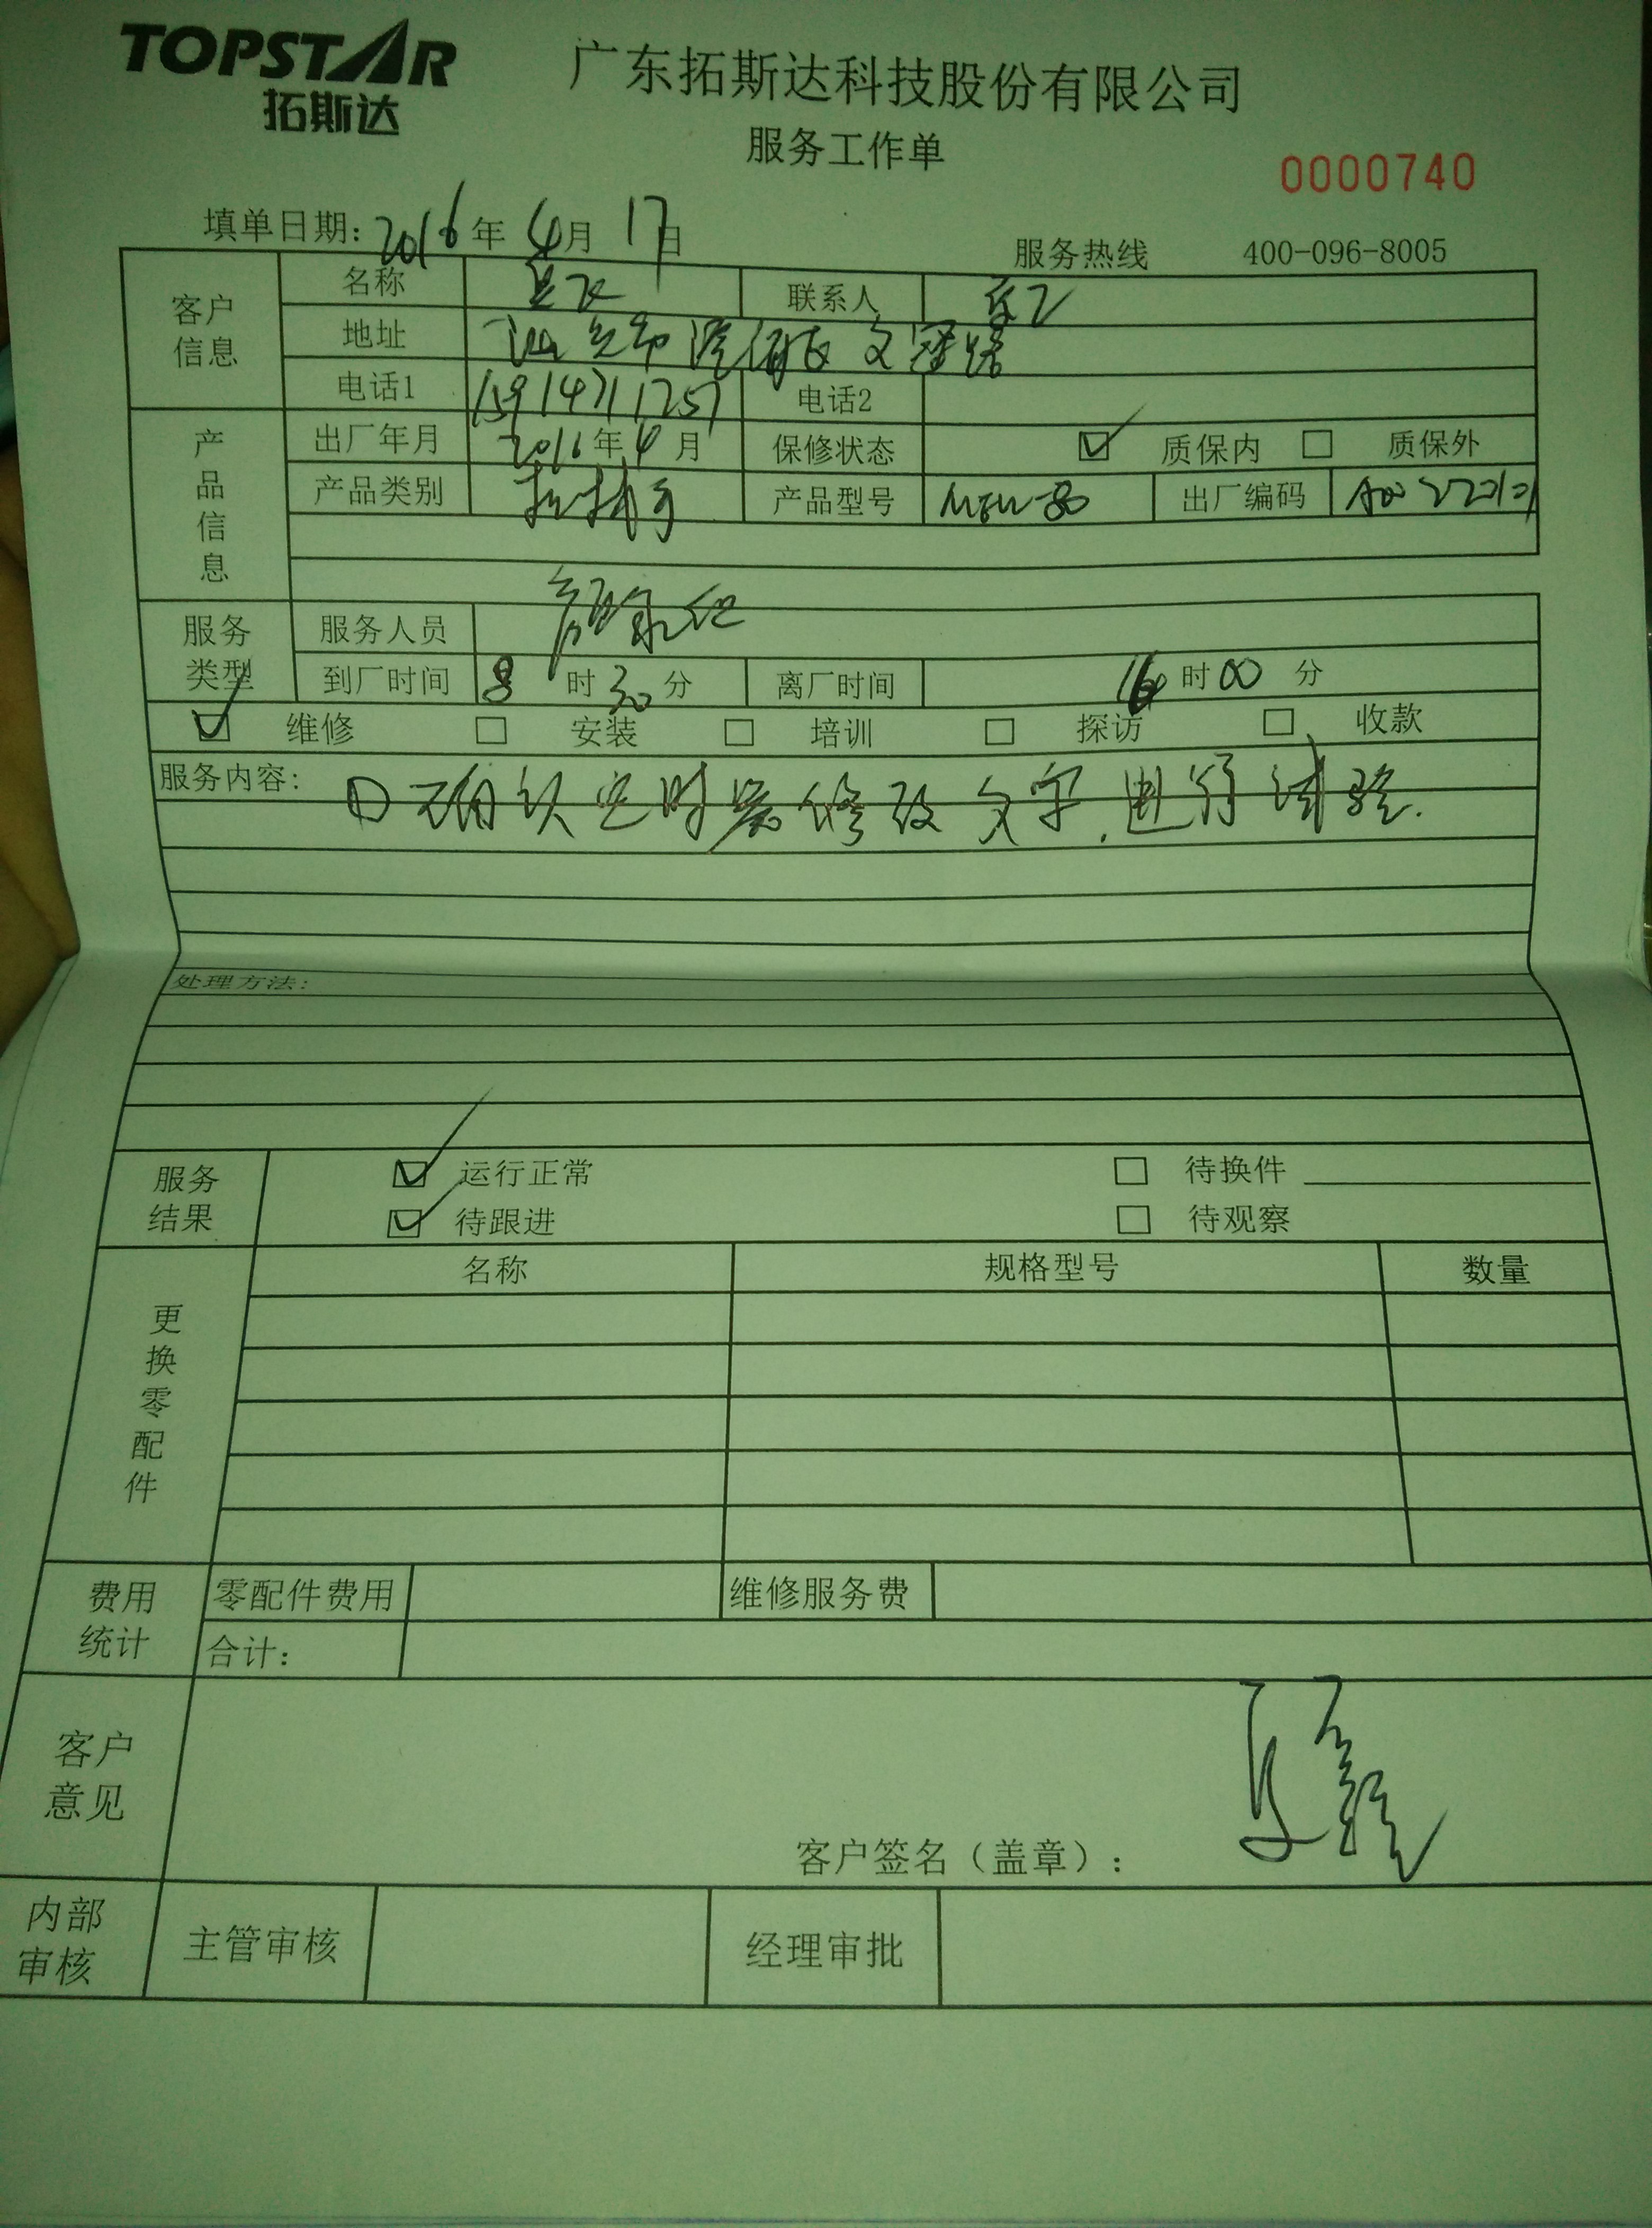 TOPSTAR
拓斯达
广东拓斯达科技股份有限公司
服务工作单
0000740
填单日期: 2016年 4月 17日
服务热线 400-096-8005
客户信息
名称 联系人
地址 汕头市 文冠路
电话1 15914711257 电话2
产品信息
出厂年月 2016年4月 保修状态 ☑ 质保内 □ 质保外
产品类别 机械手 产品型号 出厂编码
服务类型
服务人员
到厂时间 8时30分 离厂时间 16时00分
☑ 维修 □ 安装 □ 培训 □ 探访 □ 收款
服务内容: ①确认定时器修改文字,进行试验.
处理方法:
服务结果
☑ 运行正常 □ 待换件
☑ 待跟进 □ 待观察
更换零配件
名称 规格型号 数量
费用统计
零配件费用 维修服务费
合计:
客户意见
客户签名(盖章):
内部审核
主管审核 经理审批